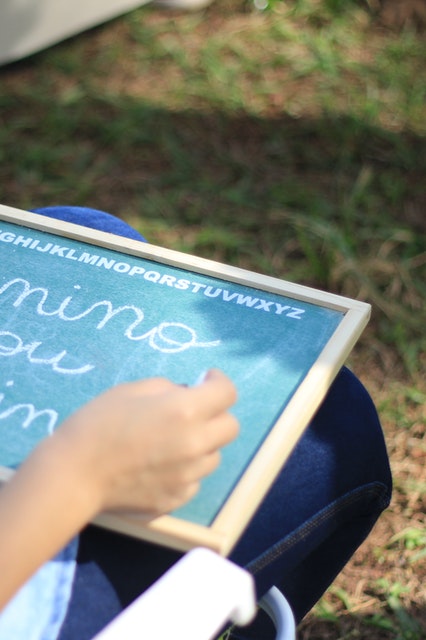 GHIJKLMNOPQRSTUVWXYZ
nino
ou
in